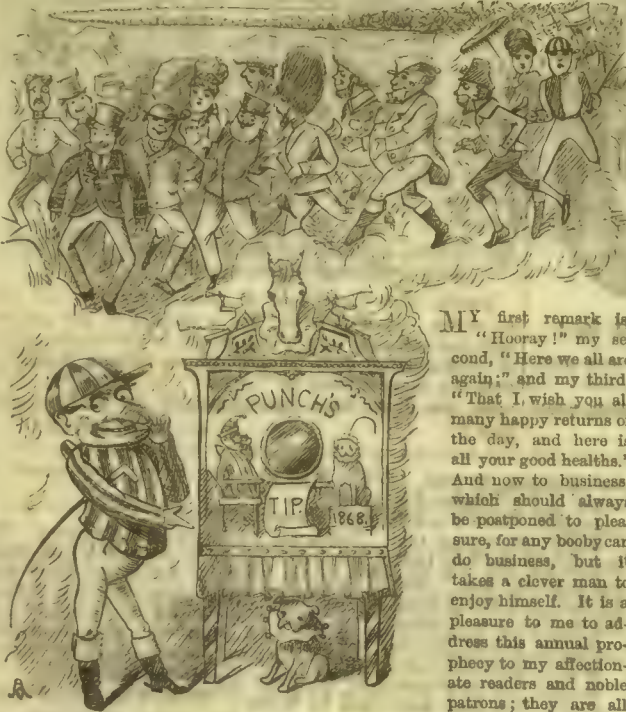 PUNCH'S
TIP.
1868.
MY first remark is
"Hooray!" my se
cond, "Here we all are
again;" and my third
"That I wish you al
many happy returns o
the day, and here is
all your good healths."
And now to business
which should always
be postponed to plea
sure, for any booby can
do business, but it
takes a clever man to
enjoy himself. It is a
pleasure to me to ad-
dress this annual pro-
phecy to my affection-
ate readers and noble
patrons; they are all